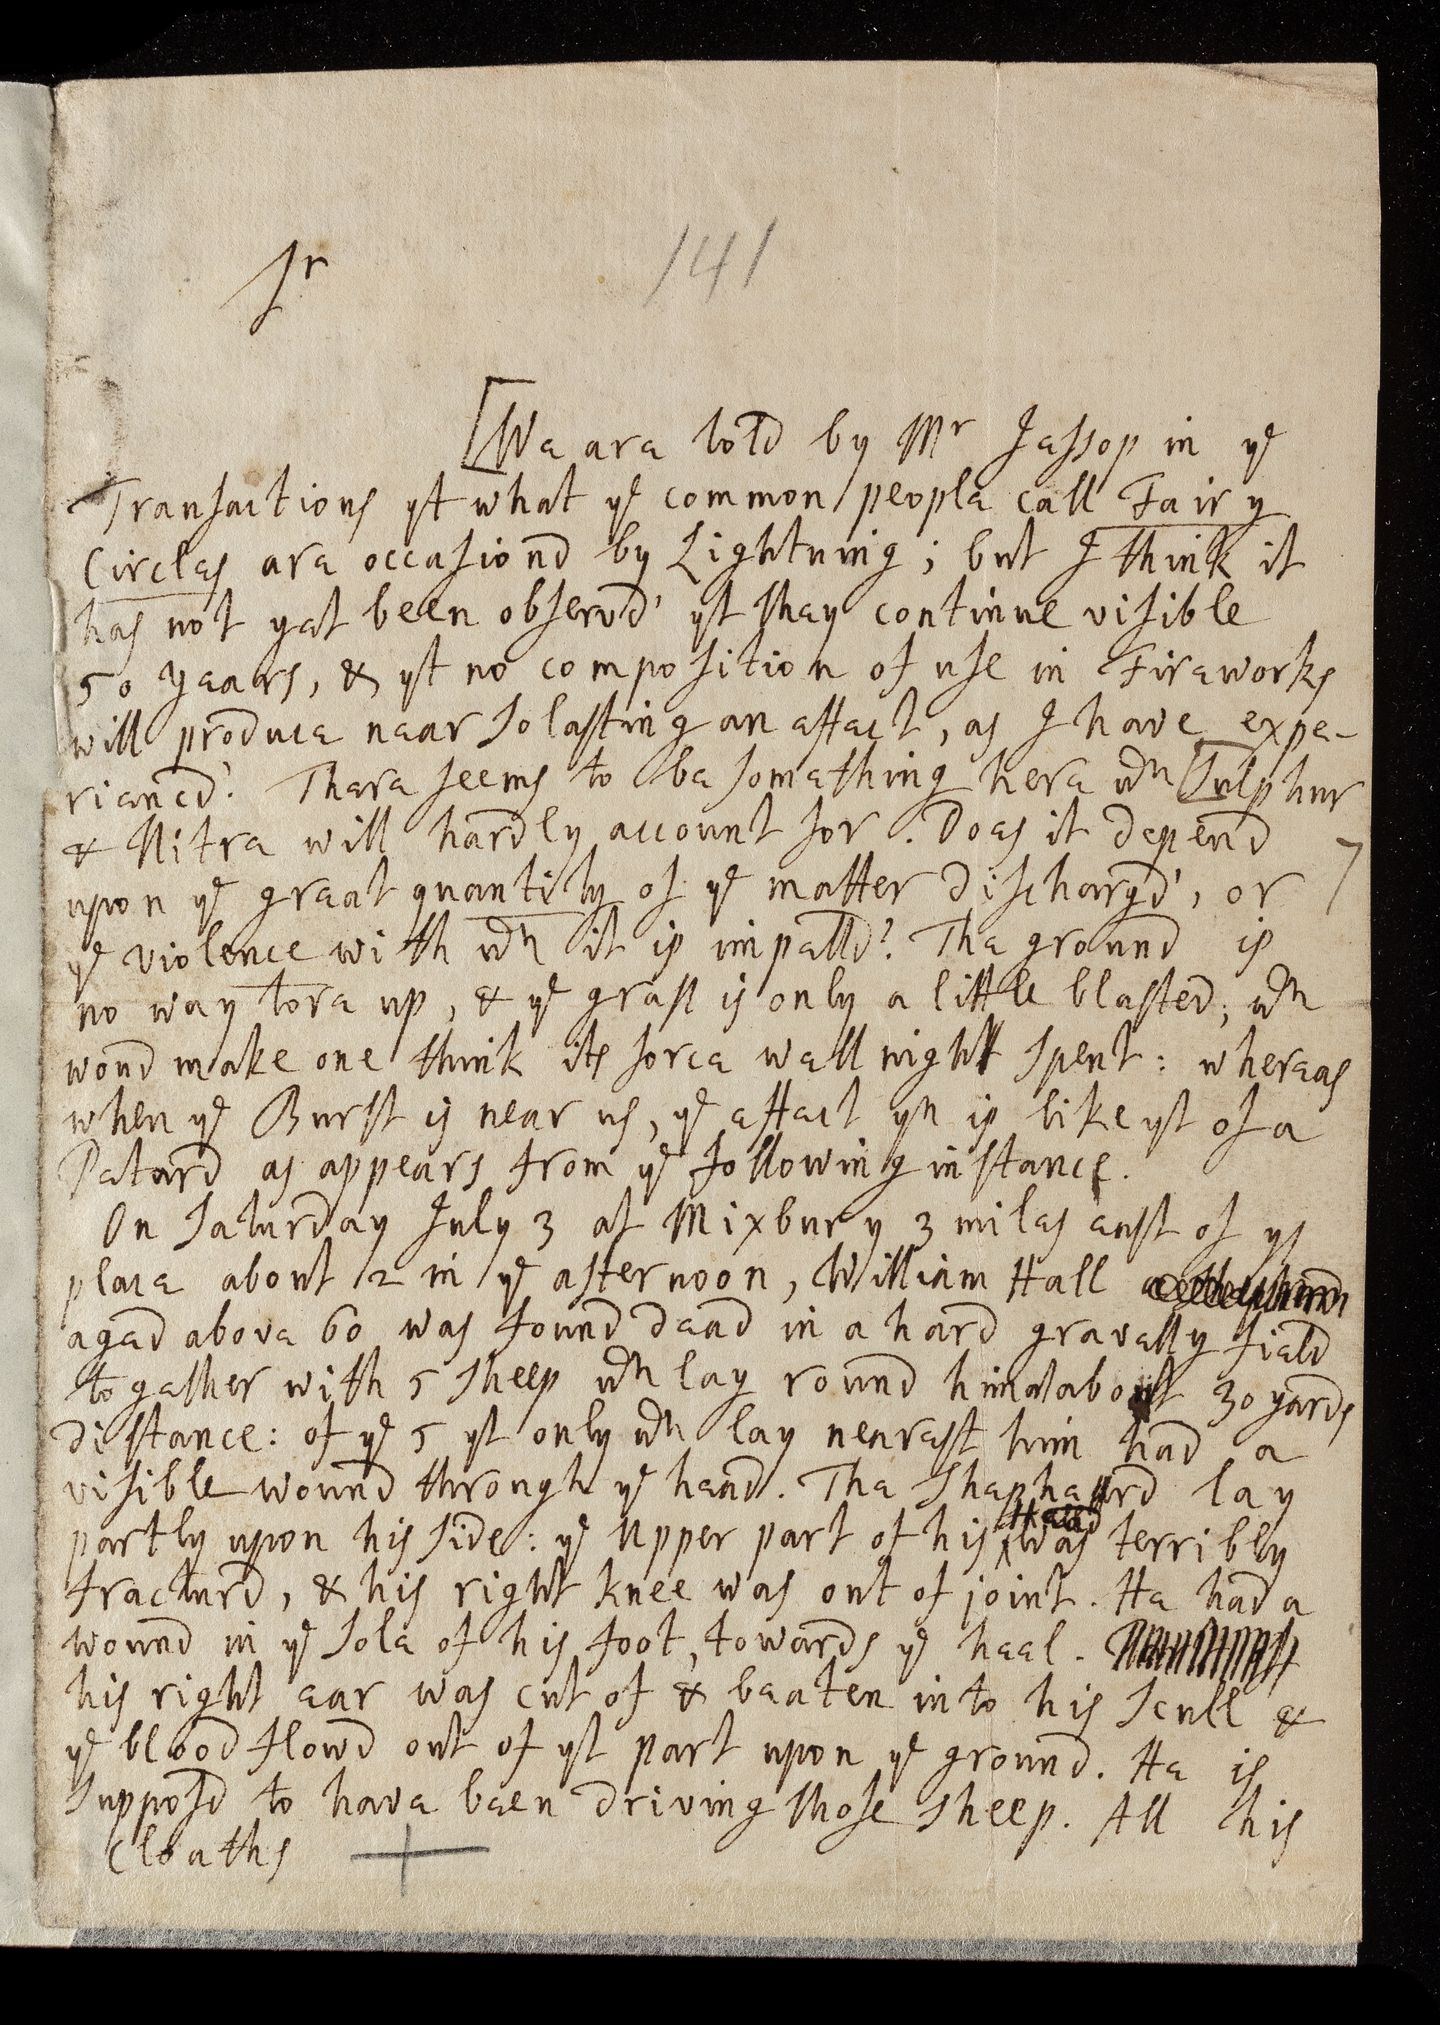 Sr
141
[We are told by Mr Jessop in ye
Transactions yt what ye common people call Fairy
Circles are occasiond by Lightning; but I think it
has not yet been observd' yt they continue visible
50 years, & yt no composition of use in Fireworks
will produce near so lasting an effect, as I have expe-
riencd'. There seems to be something here wch Sulphur
& Nitre will hardly account for. Does it depend
upon ye great quantity of ye matter dischargd', or
ye violence with wch it is impelld? The ground is
no way tore up, & ye grass is only a little blasted; wch
woud make one think its force well nigh spent: whereas
when ye Burst is near us, ye effect yn is like yt of a
Petard as appears from ye following instance.
On Saturday July 3 at Mixbury 3 miles east of ys
place about 2 in ye afternoon, William Hall
aged above 60 was found dead in a hard gravelly field
together with 5 sheep wch lay round him at about 30 yards
distance: of ye 5 yt only wch lay nearest him had a
visible wound through ye head. The Shepheard lay
partly upon his side: ye Upper part of his Head was terribly
fracturd, & his right knee was out of joint. He had a
wound in ye sole of his foot, towards ye heel.
his right ear was cut of & beaten into his Scull &
ye blood flowd out of yt part upon ye ground. He is
supposd to have been driving those sheep. All his
cloaths +